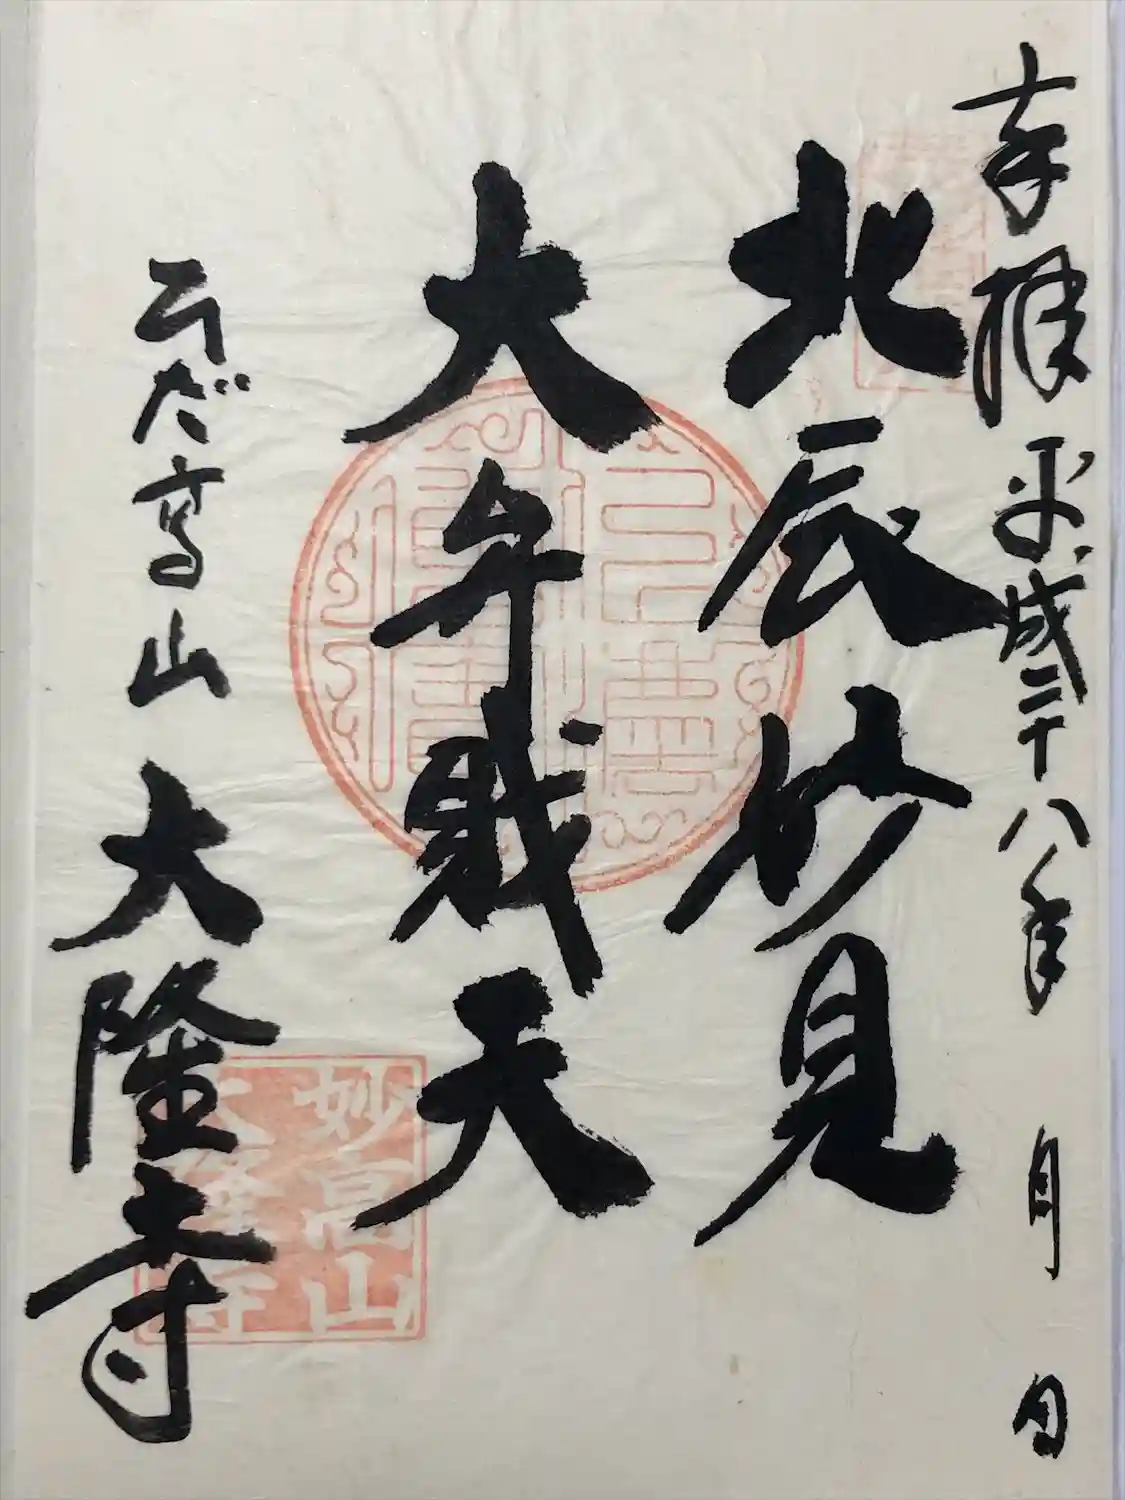 奉拝 平成二十八年 月 日
北辰妙見
大弁財天
だ高山 大隆寺
妙高山
大隆寺